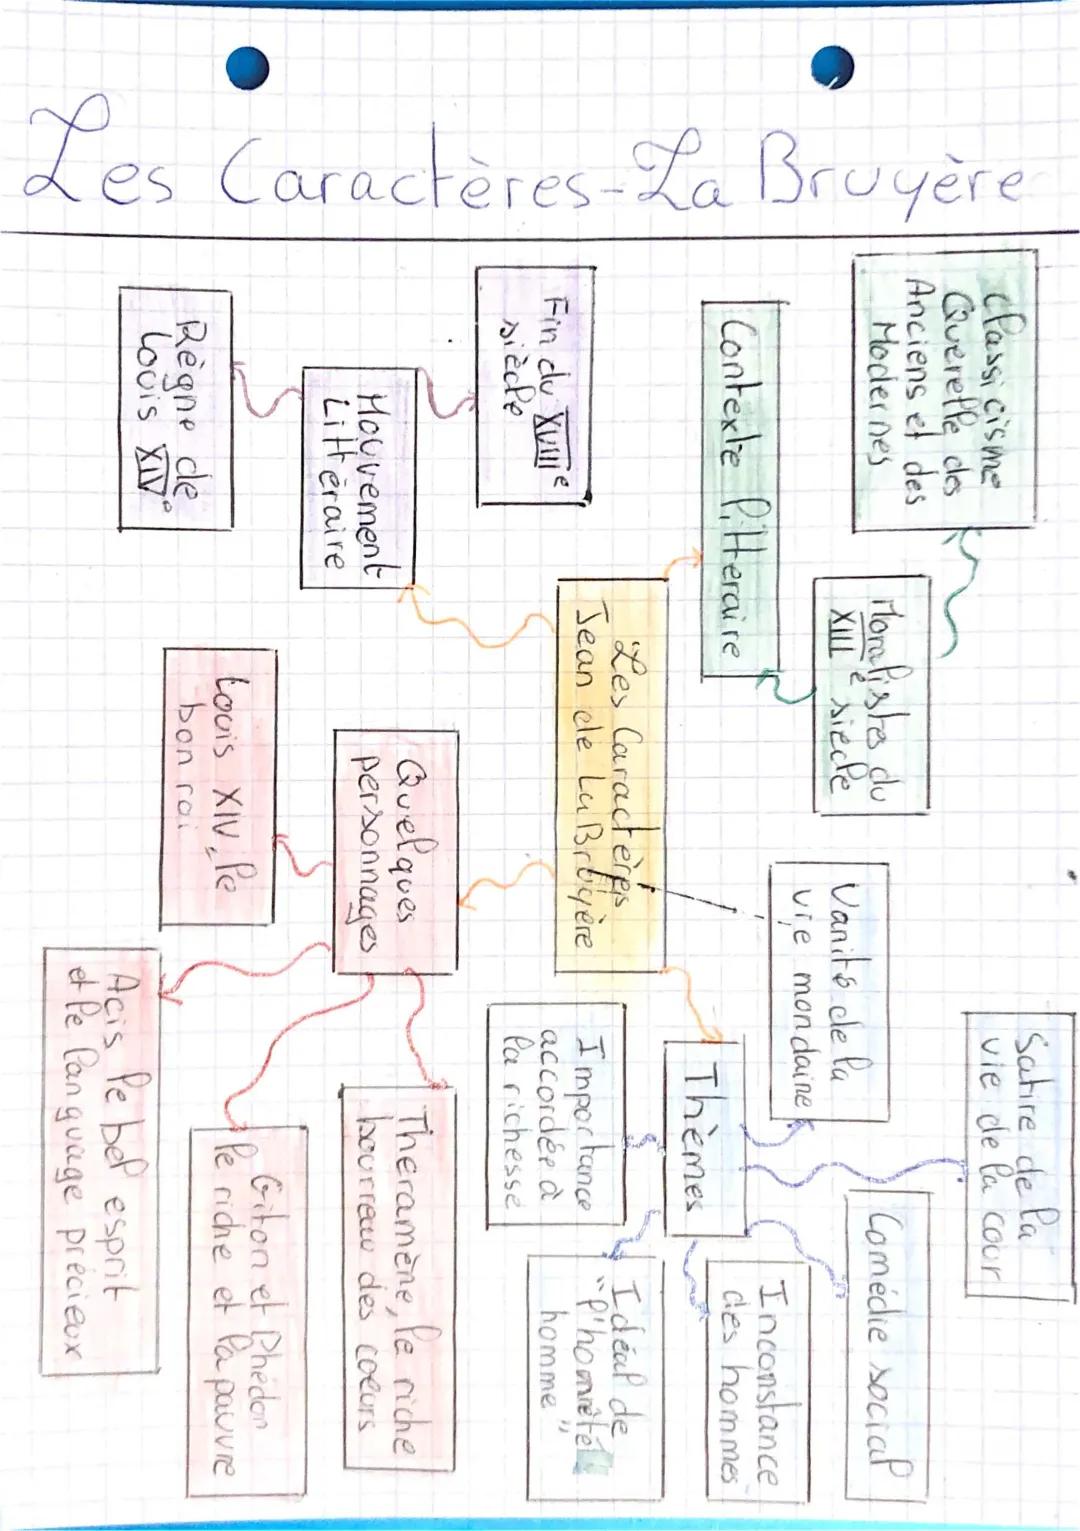 Les Caractères-La Bruyère
Classicisme
Querelle des
Anciens et des
Modernes
Moralistes du
XIII e siècle
Contexte littéraire
Fin du XVIIIe
siècle
Mouvement
Littéraire
Règne de
Louis XIVe
Les Caractères
Jean de La Bruyère
Quelques
personnages
Louis XIV, le
bon roi
Acis le bel esprit
et le languague précieux
Giton et Phédon
le riche et la pauvre
Theramène, le riche
bourreau des coeurs
Thèmes
Vanité de la
vie mondaine
Satire de la
vie de la cour
Comédie social
Inconstance
des hommes
Idéal de
"l'homnête
homme"
Importance
accordée à
la richesse